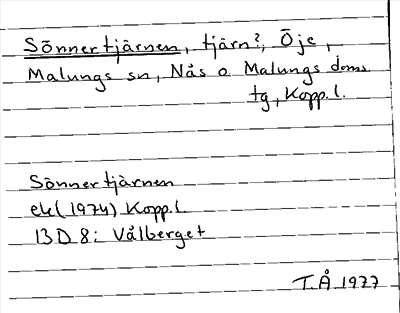 Sönnertjärnen, tjärn?, Öje,
Malungs sn, Nås o. Malungs doms.
tg, Kopp. l.
Sönnertjärnen
ek (1974) Kopp. l.
13D 8i Vålberget
T.Å 1977